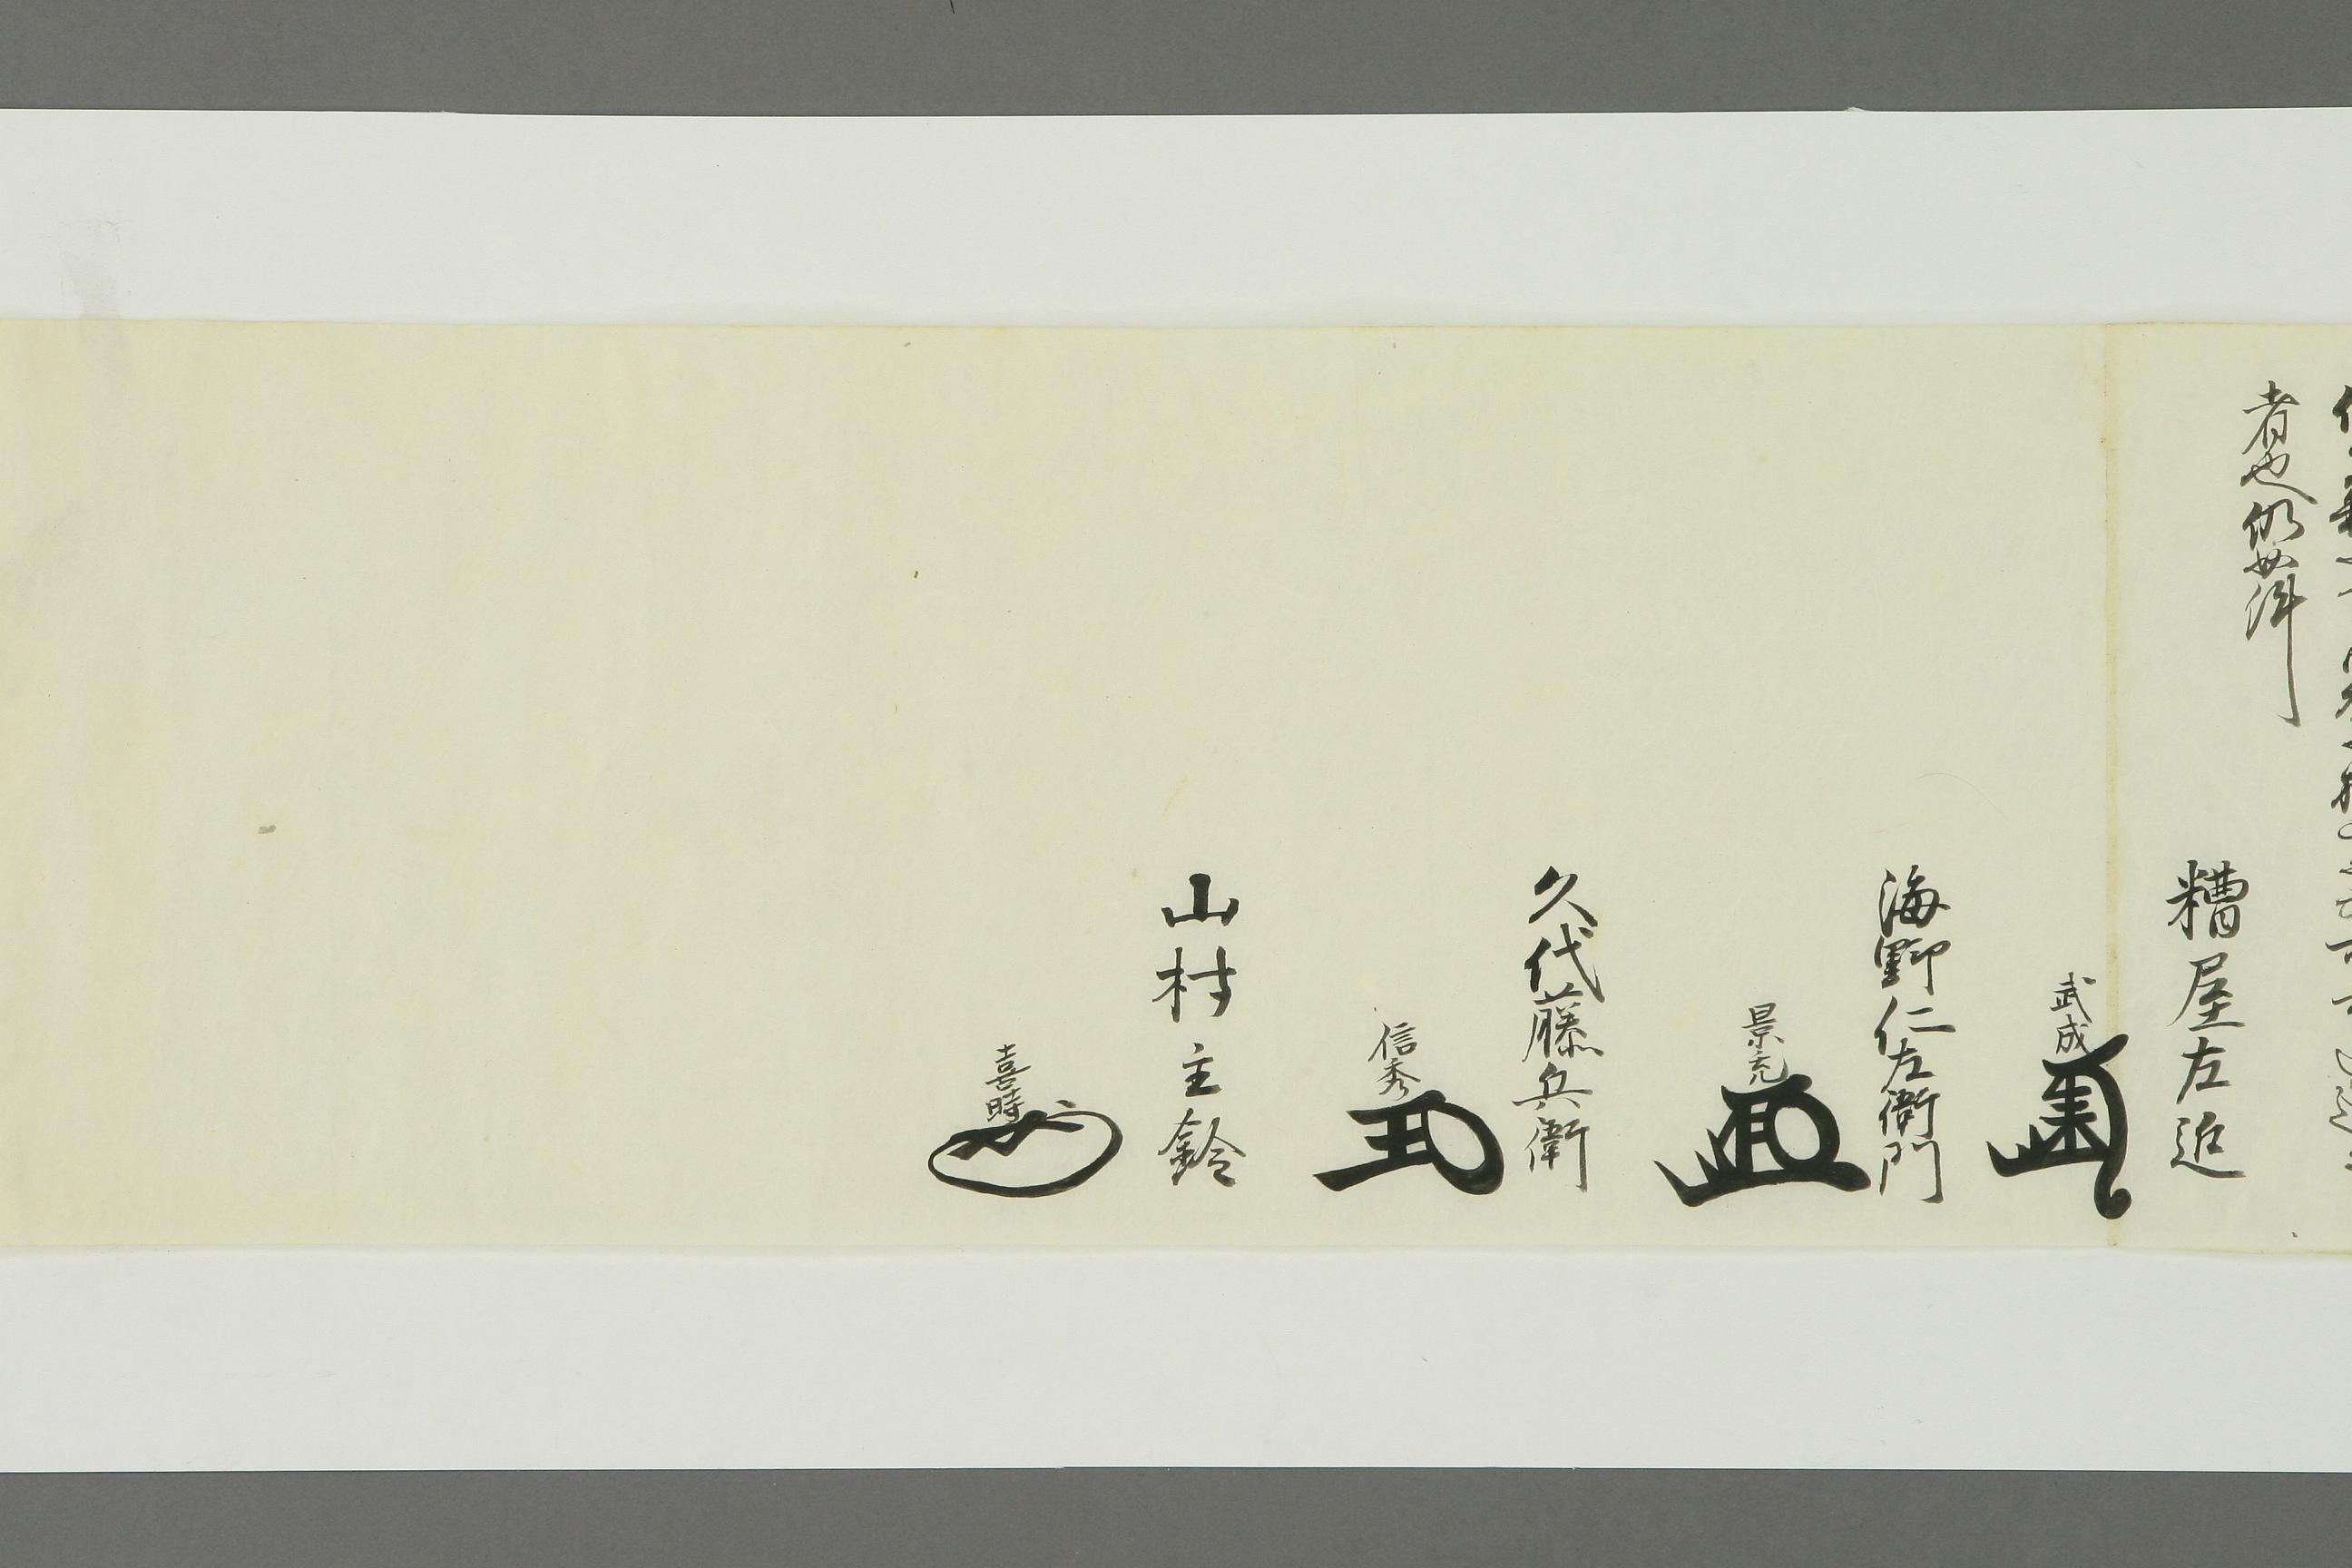 者也仍如件
糟屋左近
武成
海野仁左衛門
景充
久代藤兵衛
信秀
山村主鈴
喜時